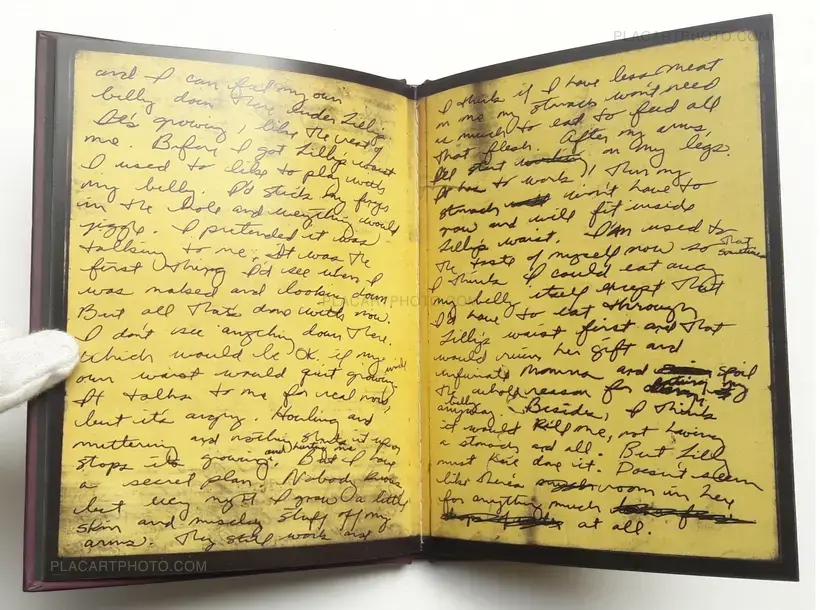 and I can feel my own
belly down there under Lilly's.
It's growing, like the rest of
me. Before I got Lilly's waist
I used to like to play with
my belly. I'd stick my fingers
in the hole and everything would
jiggle. I pretended it was
talking to me; It was the
first thing I'd see when I
was naked and looking down
But all that's done with now.
I don't see anything down there.
Which would be OK if my
own waist would quit growing
It talks to me for real now,
but it's angry. Howling and
muttering and nothing
stops its growing. But I have
a secret plan. Nobody knows
but very night I gnaw a little
skin and muscley stuff off my
arms. They still work and
I think if I have less meat
on me my stomach won't need
so much to eat to feed all
that flesh. After my arms,
I'll start on my legs.
to work) Then my
stomach won't have to
and will fit inside
Lilly's waist. I'm used to
the taste of myself now so that
sometimes
I think I could eat away
my belly itself except that
I'd have to eat through
Lilly's waist first and that
would ruin her gift and
infuriate Momma and spoil
the whole reason for my
belly
anyway. Besides, I think
it would kill me, not having
a stomach and all. But Lilly
must have done it. Doesn't seem
like there's room in her
for anything much
at all.
PLACARTPHOTO.COM
PLACARTPHOTO.COM
PLACARTPHOTO.COM